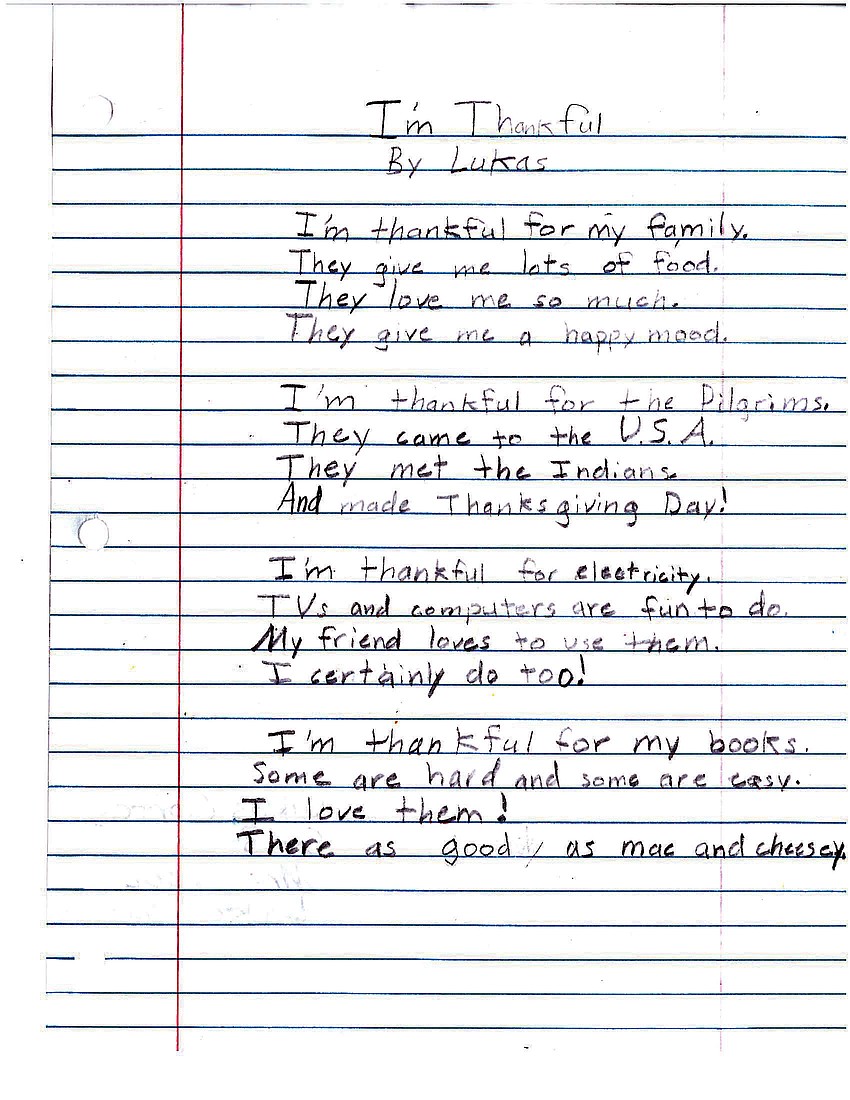 I'm Thankful
By Lukas
I'm thankful for my family.
They give me lots of food.
They love me so much.
They give me a happy mood.
I'm thankful for the Pilgrims.
They came to the U.S.A.
They met the Indians
And made Thanksgiving Day!
I'm thankful for electricity.
TVs and computers are fun to do.
My friend loves to use them.
I certainly do too!
I'm thankful for my books.
Some are hard and some are easy.
I love them!
There as good as mac and cheesey.